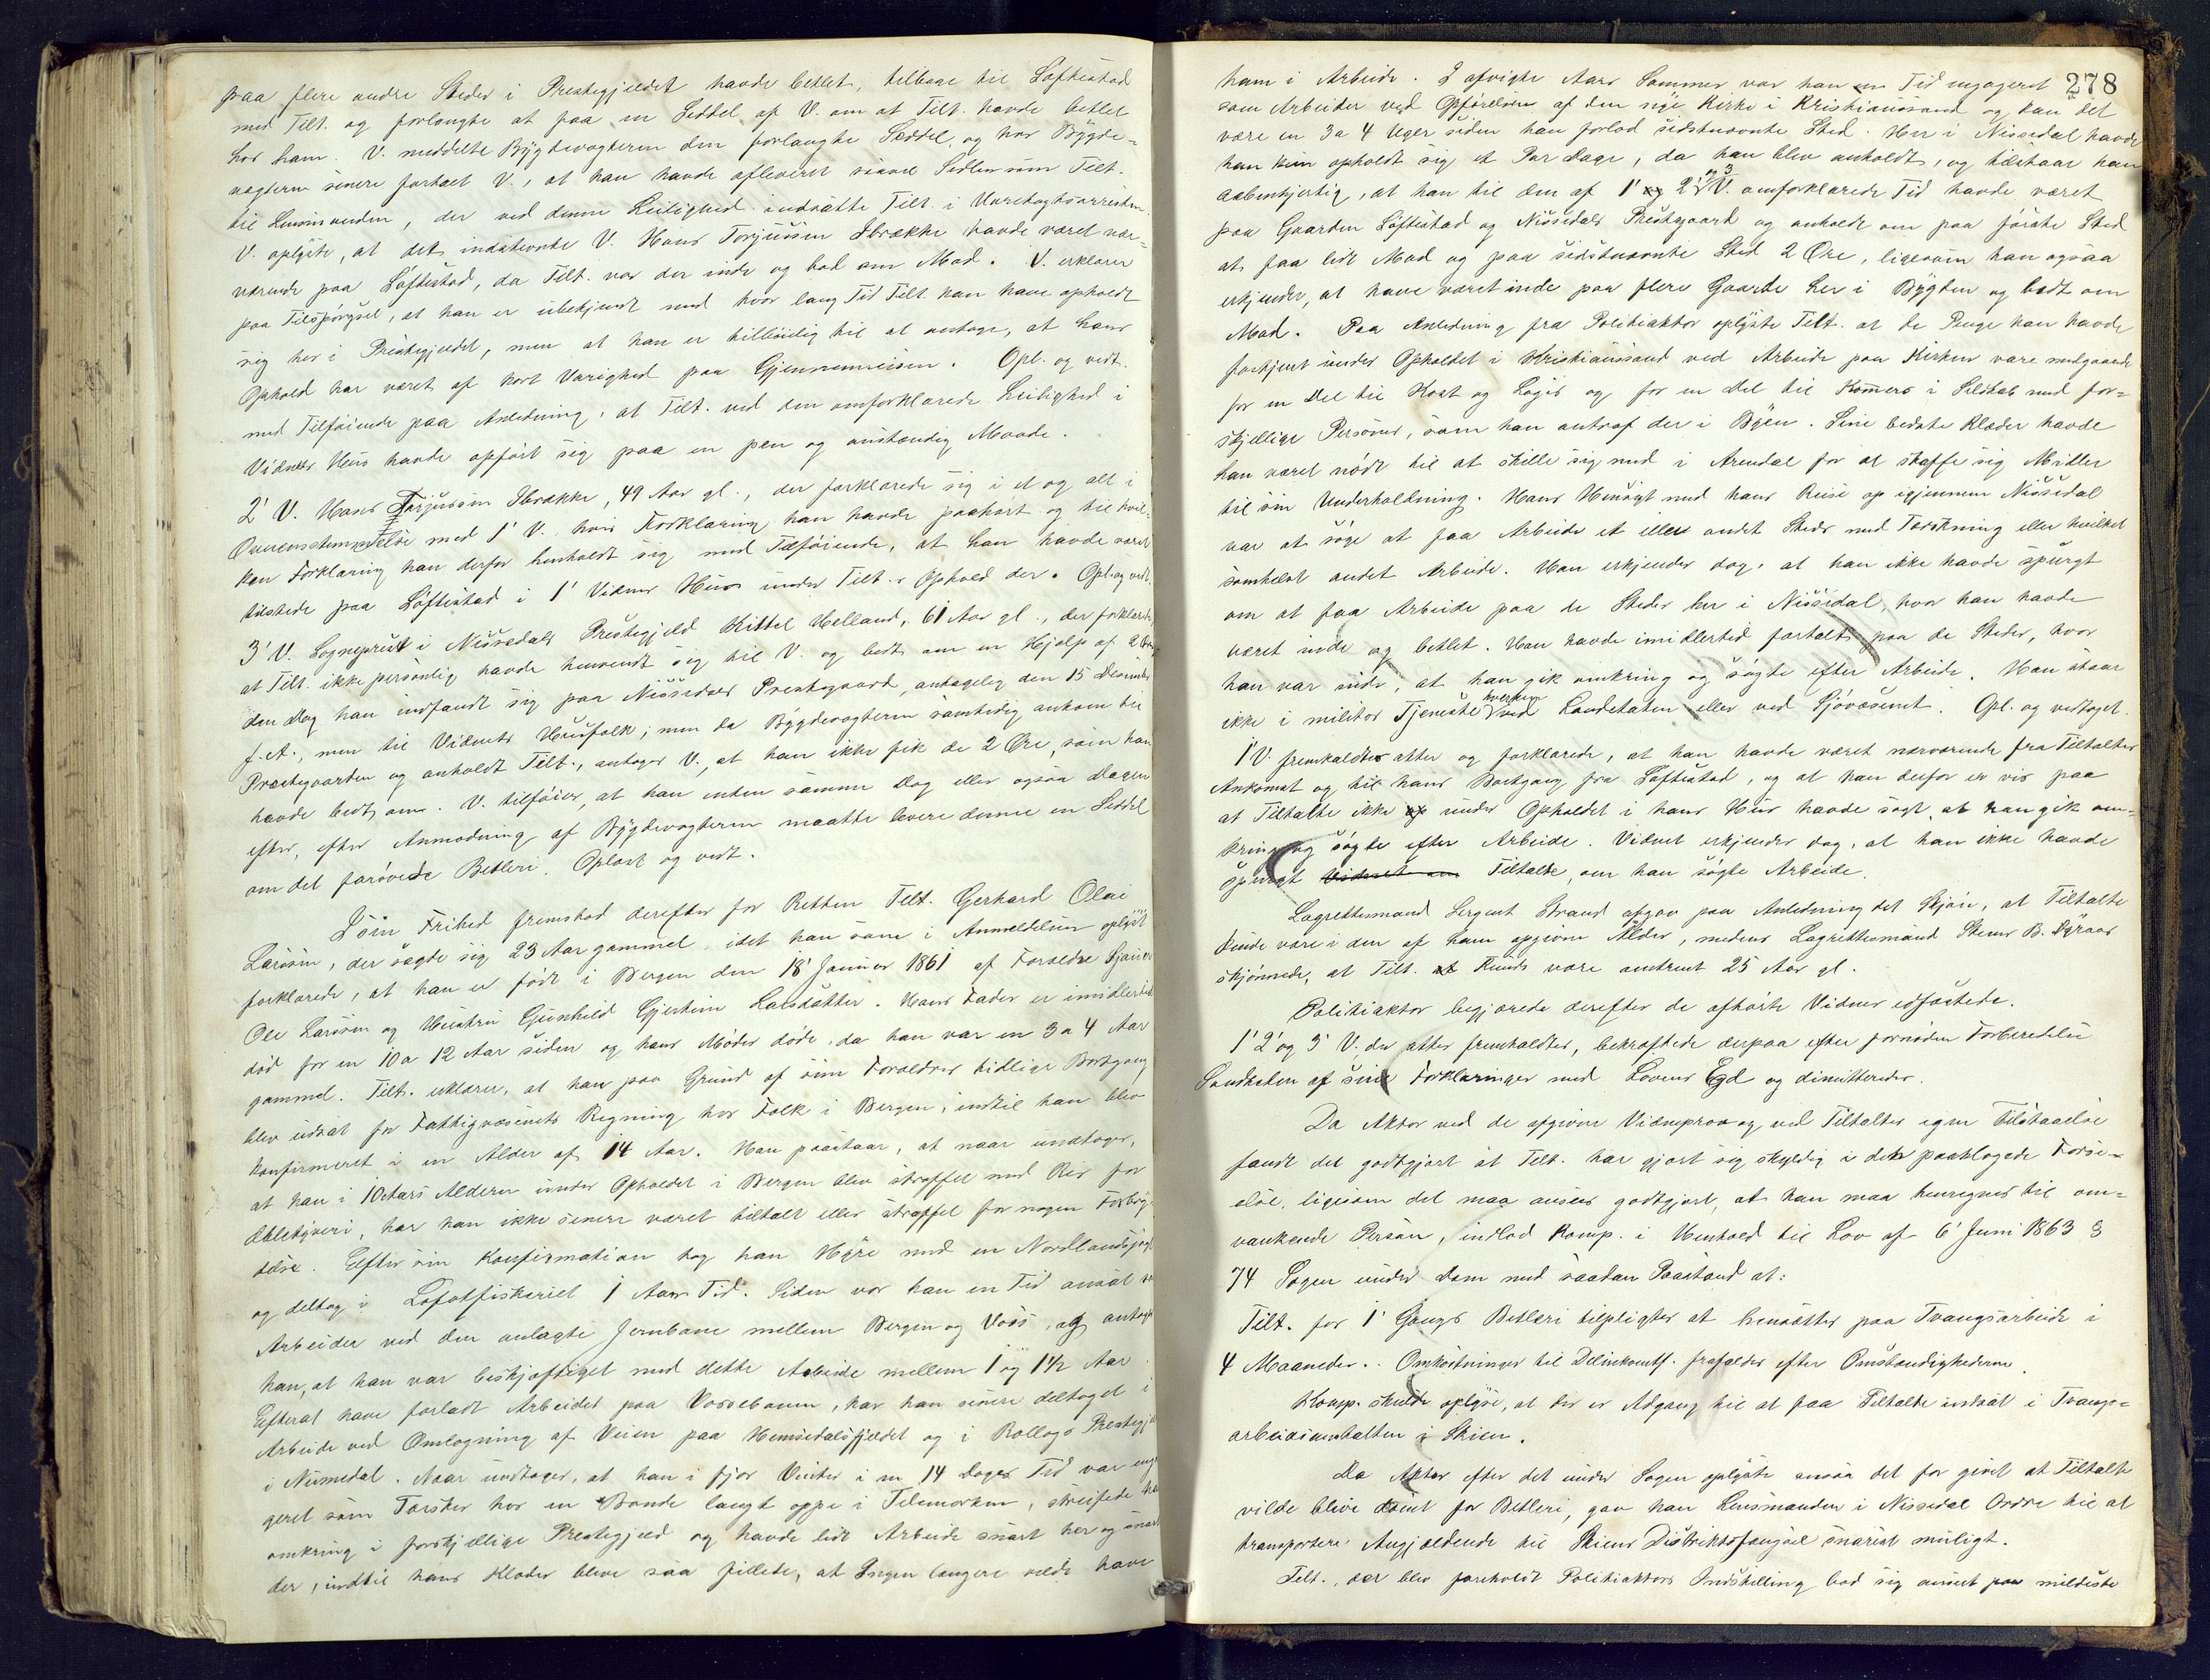 paa flere andre Steder i Prestegjeldet havde betlet, tilbage til Løftestad
med Tilt. og forlangte at faa en Seddel af V. om at Tilt. havde betlet
hos ham. V. meddelte Bygdevægteren den forlangte Seddel, og har Bygde-
vægteren senere fortalt V., at han havde afleveret saavel Sedlen som Tilt.
til Lensmanden, der ved denne Leilighed indsatte Tilt. i Varetægtsarresten.
V. oplyste, at det indstevnte V. Hans Torjussen Sbrække havde været nær-
værende paa Løftestad, da Tilt. var der inde og bad om Mad. V. erklærer
paa Tilspørgsel, at han er ubekjendt med hvor lang Tid Tilt. kan have opholdt
sig her i Prestegjeldet, men at han er tilbøielig til at antage, at hans
Ophold har været af kort Varighed paa Gjennemreisen. Opl. og vedt.
med Tilføiende paa Anledning, at Tilt. ved den omforklarede Leilighed i
Vidnets Hus havde opført sig paa en pen og anstændig Maade.
2' V. Hans Torjussen Sbrække, 49 Aar gl., der forklarede sig i et og alt i
Overensstemmelse med 1' V. hvis Forklaring han havde paahørt og til hvil-
ken Forklaring han derfor henholdt sig med Tilføiende, at han havde været
tilstede paa Løftestad i 1' Vidnes Hus under Tilt.s Ophold der. Opl. og vedt.
3' V. Sogneprest i Nissedals Prestegjeld Kittel Helland, 61 Aar gl., der forklarede
at Tilt. ikke personlig havde henvendt sig til V. og bedt om en Hjelp af 2 Øre
den Dag han indfandt sig paa Nissedals Prestegaard, antagelig den 15 Desember
f. A., men til Vidnets Husfolk; men da Bygdevægteren samtidig ankom til
Prestegaarden og anholdt Tilt., antager V., at han ikke fik de 2 Øre, som han
havde bedt om. V. tilføier, at han enten samme Dag eller ogsaa Dagen
efter, efter Anmodning af Bygdevægteren maatte levere denne en Seddel
om det forøvede Betleri. Oplæst og vedt.
Løs in Frihed fremstod derefter for Retten Tilt. Gerhard Olai
Larsen, der sagde sig 23 Aar gammel, idet han som i Anmeldelsen oplyst
forklarede, at han er født i Bergen den 18' Januar 1861 af Forældre
Ole Larsen og Hustru Gunhild Gjertine Larsdatter. Hans Fader er imidlertid
død for en 10 a 12 Aar siden og hans Moder døde, da han var en 3 a 4 Aar
gammel. Tilt. erklærer, at han paa Grund af sine Forældres tidlige Bortgang
blev udsat for Fattigvæsenets Regning hos Folk i Bergen, indtil han blev
konfirmeret i en Alder af 14 Aar. Han paastaar, at naar undtages,
at han i 10 Aars Alderen under Opholdet i Bergen blev straffet med Ris for
Æbletyveri, har han ikke senere været tiltalt eller straffet for nogen Forbry-
delse. Efter sin Konfirmation tog han Hyre med en Nordlandsjagt
og deltog i Lofotfiskeriet 1 Aars Tid. Siden var han en Tid ansat som
Arbeider ved den anlagte Jernbane mellem Bergen og Voss, og antager
han, at han var beskjæftiget med dette Arbeide mellem 1 og 1½ Aar.
Efterat have forladt Arbeidet paa Vossebanen, har han senere deltaget i
Arbeide ved Omlægning af Veien paa Hemsedalsfjeldet og i Rollags Prestegj.
i Numedal. Naar undtages, at han i fjor Vinter i en 14 Dages Tid var enga-
geret som Tærsker hos en Bonde langt oppe i Telemarken, streifede han
omkring i forskjellige Prestegjeld og havde lidt Arbeide snart her og snart
der, indtil hans Klæder bleve saa fillete, at Ingen længere vilde have
278
ham i Arbeide. I afvigte Aars Sommer var han en Tid engageret
som Arbeider ved Opførelsen af den nye Kirke i Kristianssand og kan det
være en 3 a 4 Uger siden han forlod sidstnævnte Sted. Her i Nissedal havde
han kun opholdt sig et Par Dage, da han blev anholdt, og tilstaar han
aabenhjertig, at han til den af 1' 2' og 3' V. omforklarede Tid havde været
paa Gaarden Løftestad og Nissedals Prestegaard og anholdt om paa første Sted
at faa lidt Mad og paa sidstnævnte Sted 2 Øre, ligesom han ogsaa
erkjender, at have været inde paa flere Gaarde her i Bygden og bedt om
Mad. Paa Anledning fra Politiaktor oplyste Tilt. at de Penge han havde
fortjent under Opholdet i Kristianssand ved Arbeide paa Kirken vare medgaaede
for en Del til Kost og Logis og for en Del til Kommers i Selskab med for-
skjellige Personer, som han antraf der i Byen. Sine bedste Klæder havde
han været nødt til at skille sig med i Arendal for at skaffe sig Midler
til sin Underholdning. Hans Hensigt med hans Reise op igjennem Nissedal
var at søge at faa Arbeide et eller andet Steds med Tærskning eller hvilket
somhelst andet Arbeide. Han erkjender dog, at han ikke havde spurgt
om at faa Arbeide paa de Steder her i Nissedal, hvor han havde
været inde og betlet. Han havde imidlertid fortalt paa de Steder, hvor
han var inde, at han gik omkring og søgte efter Arbeide. Han staar
ikke i militær Tjeneste hverken ved Landetaten eller ved Sjøvæsenet. Opl. og vedtaget.
1' V. fremkaldtes atter og forklarede, at han havde været nærværende fra Tiltaltes
Ankomst og til hans Bortgang fra Løftestad, og at han derfor er vis paa
at Tiltalte ikke under Opholdet i hans Hus havde sagt, at han gik om-
kring og søgte efter Arbeide. Vidnet erkjender dog, at han ikke havde
spurgt Vidnet om Tiltalte, om han søgte Arbeide.
Lagrettemand Sergent Strand afgav paa Anledning det Skjøn, at Tiltalte
kunde være i den af ham opgivne Alder, medens Lagrettemand Stener B. Dyraas
skjønnede, at Tilt. kunde være omtrent 25 Aar gl.
Politiaktor begjærede derefter de afhørte Vidner edfæstede.
1' 2' og 3' V., der atter fremkaldtes, bekræftede derpaa efter fornøden Forberedelse
Sandheden af sine Forklaringer med Lovens Ed og dimitteredes.
Da Aktor ved de afgivne Vidneprov og ved Tiltaltes egen Tilstaaelse
fandt det godtgjort at Tilt. har gjort sig skyldig i den paaklagede Forse-
else, ligesom det maa ansees godtgjort, at han maa henregnes til om-
vankende Person, indlod Komp. i Henhold til Lov af 6' Juni 1863 §
74 Sagen under Dom med saadan Paastand at:
Tilt. for 1' Gangs Betleri tilpligtes at hensættes paa Tvangsarbeide i
4 Maaneder. Omkostninger til Delinkventf. frafaldes efter Omstændighederne.
Komp. skulde oplyse, at der er Adgang til at faa Tiltalte indsat i Tvangs-
arbeidsanstalten i Skien.
Da Aktor efter det under Sagen oplyste ansaa det for givet at Tiltalte
vilde blive dømt for Betleri, gav han Lensmanden i Nissedal Ordre til at
transportere Angjældende til Skiens Distriktsfængsel snarest muligt.
Tilt., der blev foreholdt Politiaktors Indstilling bad sig anseet paa mildeste